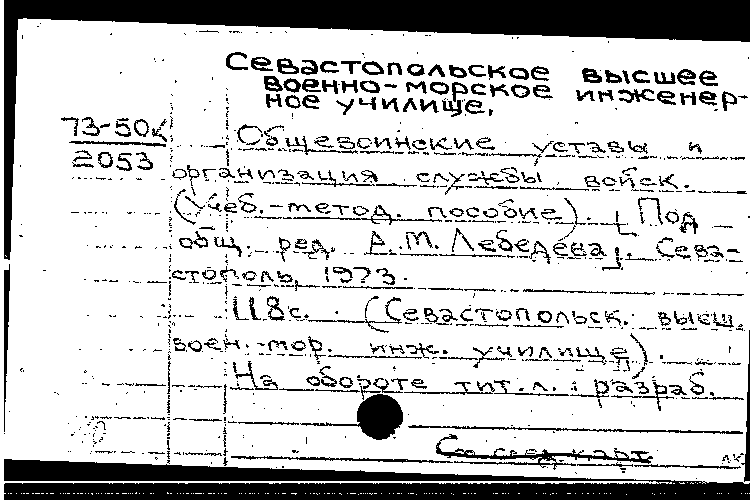 Севастопольское высшее
военно-морское инженер-
ное училище,
73-50к
2053
Общевоинские уставы и
организация службы войск.
(Учеб.-метод. пособие). [Под
общ. ред. А.М. Лебедева]. Сева-
стополь, 1973.
118с. (Севастопольск. высш.
воен.-мор. инж. училище).
На обороте тит.л.: разраб.
См след карт
лк